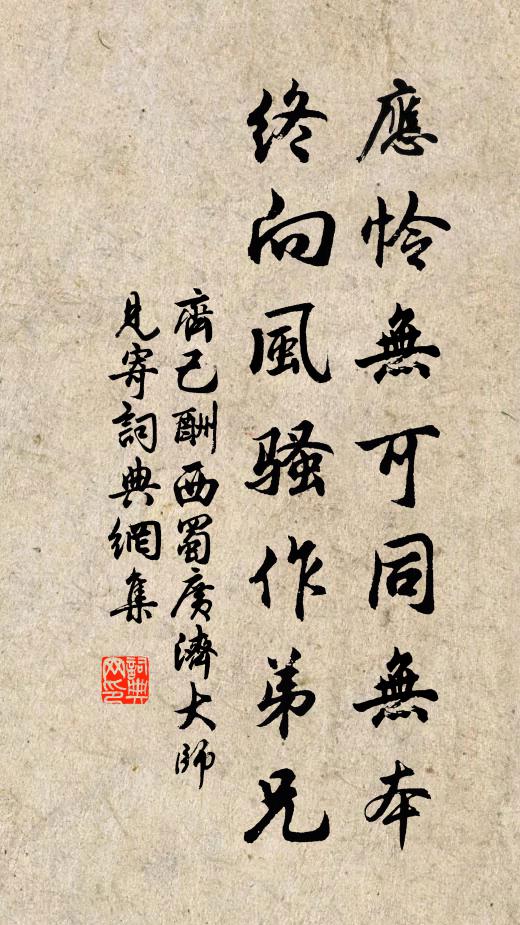 應怜無可同無本
終向風騷作弟兄
齊己酬西蜀廣濟大師
見寄詞典網集
詞典
网印